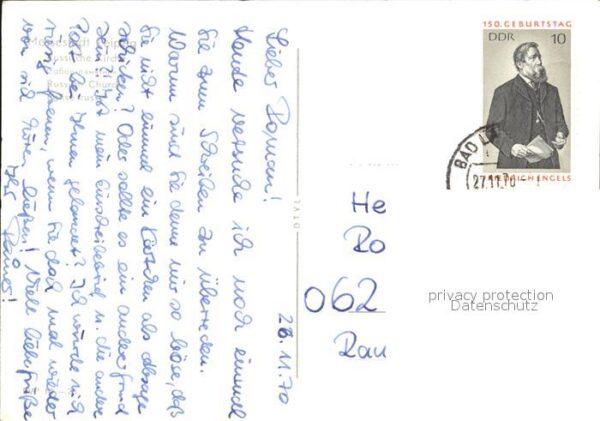 28.11.70
Lieber Roman!
Heute versuche ich noch einmal
Sie zum Schreiben zu überreden.
Warum sind Sie denn mir so böse, daß
Sie nicht einmal ein Kärtchen als Absage
schicken? Oder sollte es ein anderer Grund
sein? Ist mein Einschreibebrief u. die andere
Post bei Ihnen gelandet? Ich würde mich
riesig freuen, wenn Sie doch mal wieder
von sich hören ließen! Viele liebe Grüße
Ihr
Rainer!
Messestadt Leipzig
Russische Kirche
Russian Church
150. GEBURTSTAG
DDR 10
FRIEDRICH ENGELS
BAD
27.11.70
He
Ro
062
Rau
privacy protection
Datenschutz